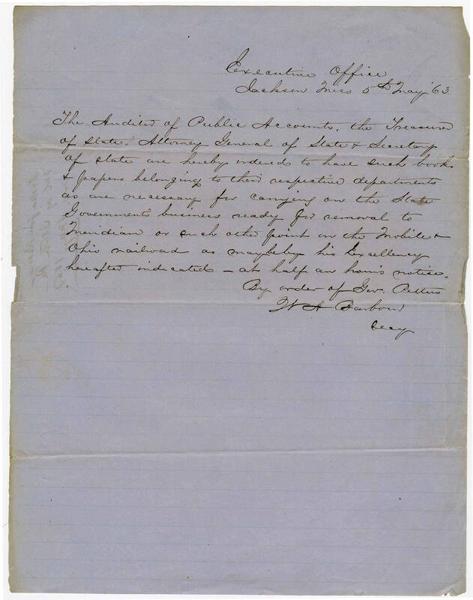 Executive Office
Jackson Miss 5th May 63
The Auditor of Public Accounts, the Treasurer
of State, Attorney General of State & Secretary
of State are hereby ordered to have such books
& papers belonging to their respective departments
as are necessary for carrying on the State
Government business ready for removal to
Meridian or such other point on the Mobile &
Ohio railroad as may be by his Excellency
hereafter indicated — at half an hour's notice.
By order of Gov. Pettus
Barbour
Secy